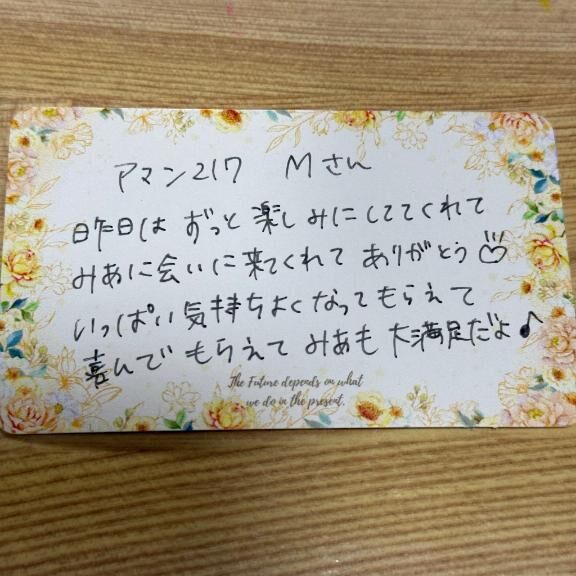 アマン217 Mさん
昨日は ずっと 楽しみにしててくれて
みあに会いに来てくれて ありがとう
いっぱい気持ちよくなってもらえて
喜んで もらえて みあも 大満足だよ♪
The Future depends on what
we do in the present.